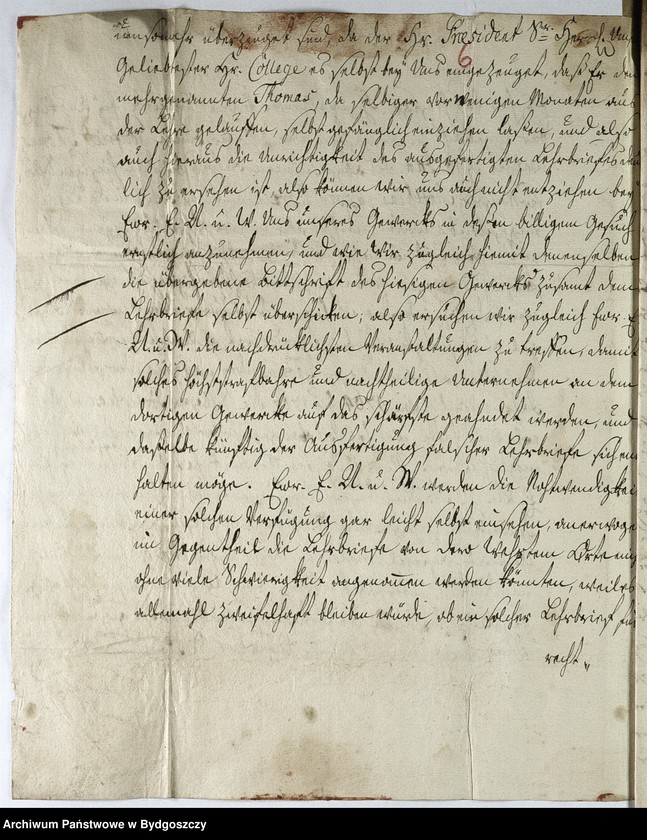 umsomehr überzeuget sind, da der Hr. Præsident Sr. Her
6
Geliebtester Hr. College es selbst bey Uns eingezeuget, daß Er den
mehrgenannten Thomas, da selbiger vor wenigen Monaten aus
der Lehre gelauffen, selbst gefänglich einziehen laßen, und also
auch hieraus die Unrichtigkeit des ausgefertigten Lehrbriefes
lich zu ersehen ist, also können wir uns auch nicht entziehen bey
Ewr. E. A. u. W. Uns unseres Gewercks in deßen billigem Gesuch
ernstlich anzunehmen, und wie wir zugleich hiemit denenselben
die übergebene Bittschrift des hiesigen Gewercks zusamt dem
Lehrbriefe selbst überschicken; also ersuchen wir zugleich Ewr. E
A. u. W. die nachdrücklichsten Veranstaltungen zu treffen, damit
solches höchststrafbahre und nachtheilige Unternehmen an dem
dortigen Gewercke auf das schärfste geahndet werden, und
daßelbe künftig der Ausfertigung falscher Lehrbriefe sich
halten möge. Ewr. E. A. u. W. werden die Nohtwendigkei
einer solchen Verfügung gar leicht selbst einsehen, anerwoge
im Gegentheil die Lehrbriefe von dero Orte
ohne viele Schwierigkeit angenommen werden könnten, weil es
allemahl zweifelhaft bleiben würde, ob ein solcher Lehrbrief für
recht
Archiwum Państwowe w Bydgoszczy